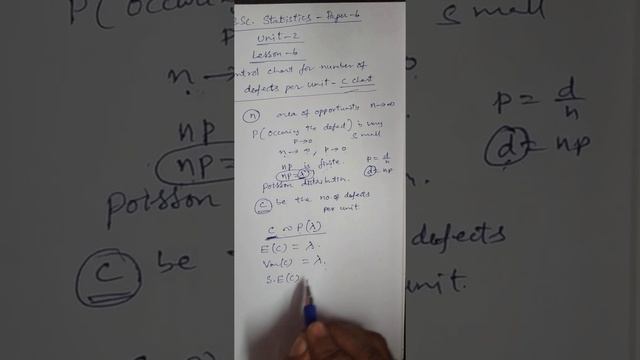 .Sc. Statistics - Paper-6
Unit-2
Lesson-6
ntrol chart for number of
defects per unit - C chart
n area of opportunity n→∞
P(occuring the defect) is very small
p→0
n→∞, p→0
np is finite. p = d/n
np = λ d = np
poisson distribution.
C be the no. of defects
per unit
C ~ P(λ)
E(C) = λ.
Var(C) = λ.
S.E(C)